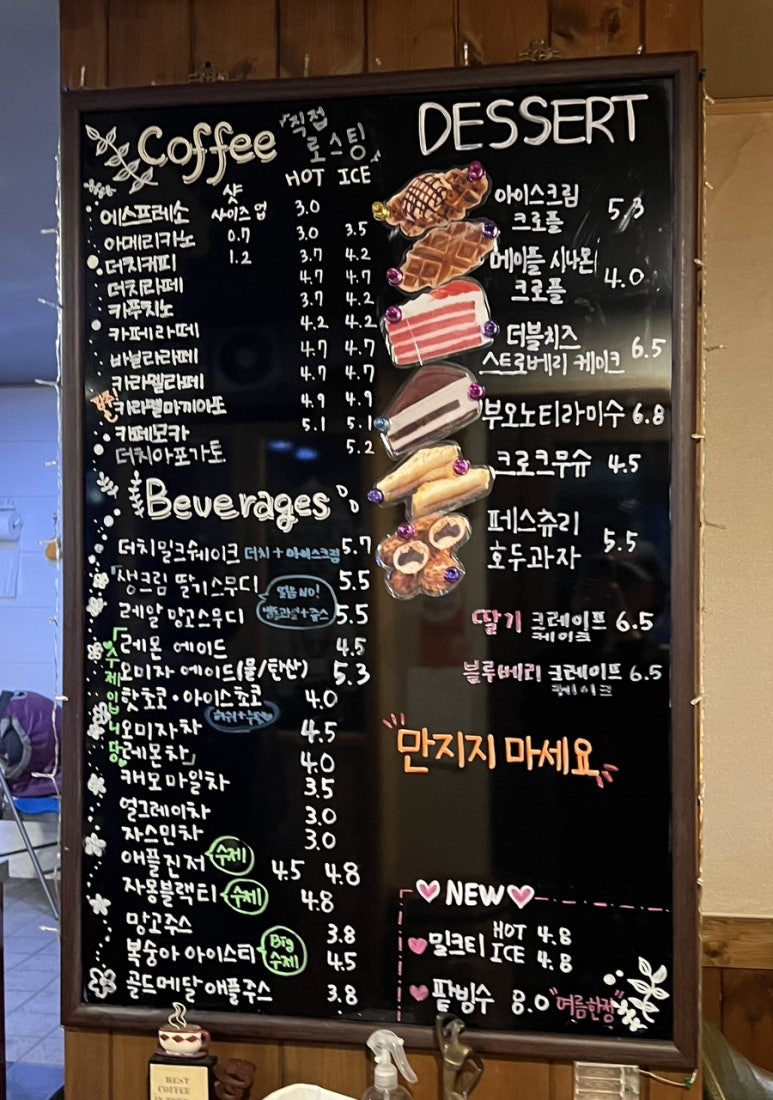 Coffee 『직접
로스팅』
HOT ICE
샷
에스프레소 사이즈 업 3.0
아메리카노 0.7 3.0 3.5
더치커피 1.2 3.7 4.2
더치라떼 4.7 4.7
카푸치노 3.7 4.2
카페라떼 4.2 4.2
바닐라라떼 4.7 4.7
카라멜라떼 4.7 4.7
카라멜마끼아또 4.9 4.9
카페모카 5.1 5.1
더치아포가토 5.2
Beverages
더치밀크쉐이크 더치+아이스크림 5.7
생크림 딸기스무디 5.5
얼음 NO!
레알 망고스무디 5.5
『수제입니당』
레몬 에이드 4.5
오미자 에이드(물/탄산) 5.3
핫초코·아이스쵸코 4.0
오미자차 4.5
레몬차 4.0
캐모마일차 3.5
얼그레이차 3.0
자스민차 3.0
애플진저 수제 4.5 4.8
자몽블랙티 수제 4.8
망고주스 3.8
복숭아 아이스티 Big 수제 4.5
골드메달 애플주스 3.8
DESSERT
아이스크림
크로플 5.3
메이플 시나몬
크로플 4.0
더블치즈
스트로베리 케이크 6.5
부오노티라미수 6.8
크로크무슈 4.5
페스츄리
호두과자 5.5
딸기 크레이프 6.5
케이크
블루베리 크레이프 6.5
케이크
만지지 마세요
NEW
밀크티 HOT 4.8
ICE 4.8
팥빙수 8.0 "여름한정"
BEST
COFFEE